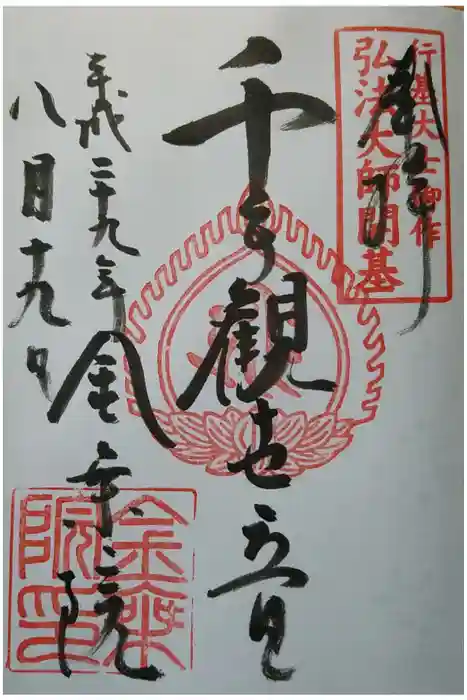 奉拝
行基大士御作
弘法大師開基
千手觀世音
平成二十九年
八月十九日
金乗院
金乗
院印